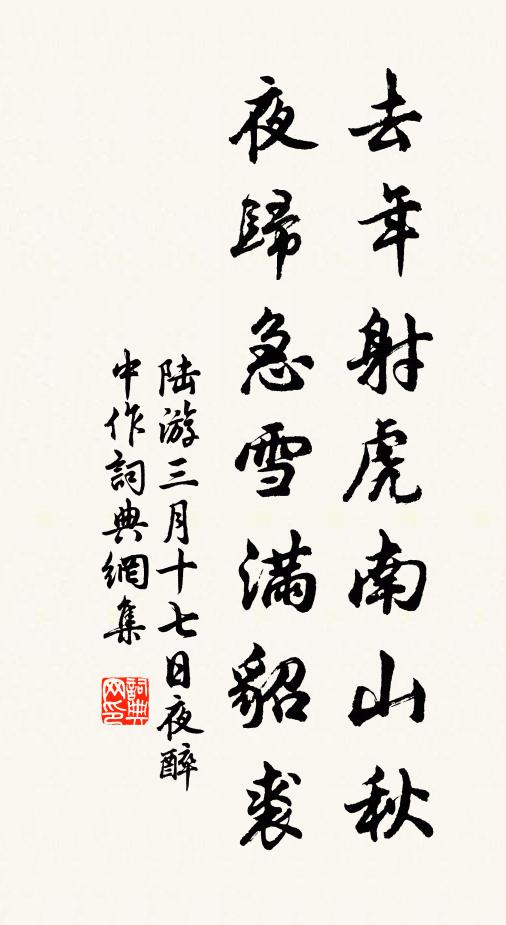 去年射虎南山秋
夜歸急雪滿貂裘
陆游三月十七日夜醉
中作詞典網集
詞典
网印